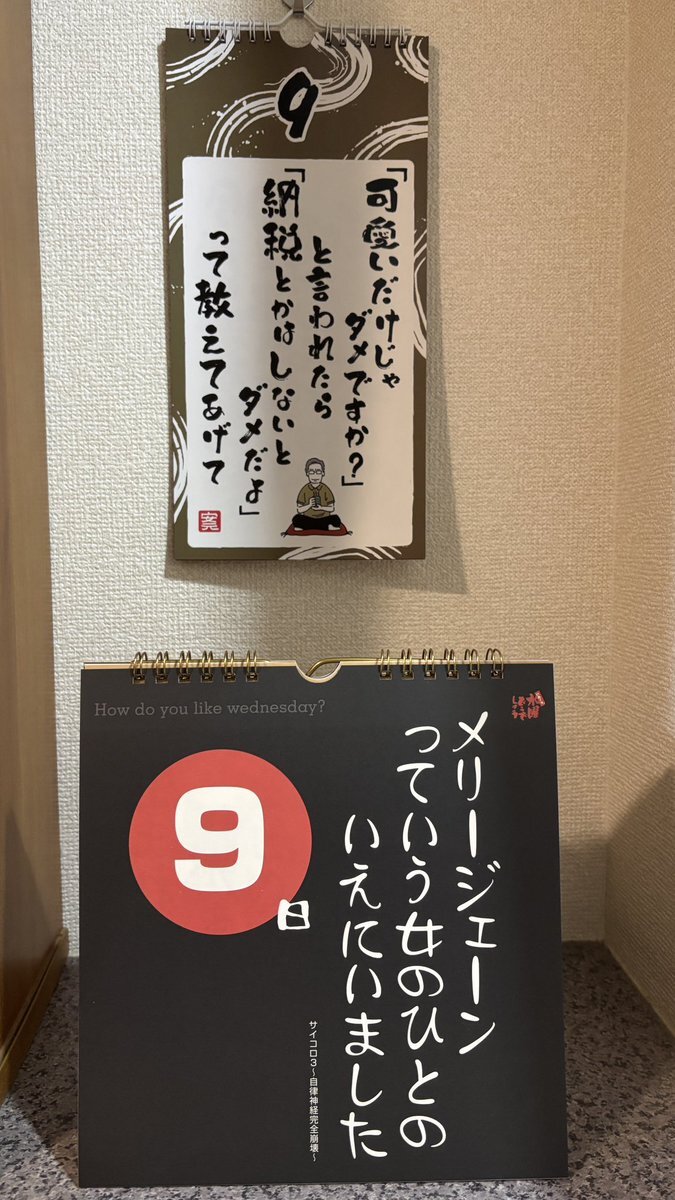 9
「可愛いだけじゃ
ダメですか?」
と言われたら
「納税とかはしないと
ダメだよ」
って教えてあげて
How do you like wednesday?
メリージェーン
っていう女のひとの
いえにいました
9
日
サイコロ3～自律神経完全崩壊～